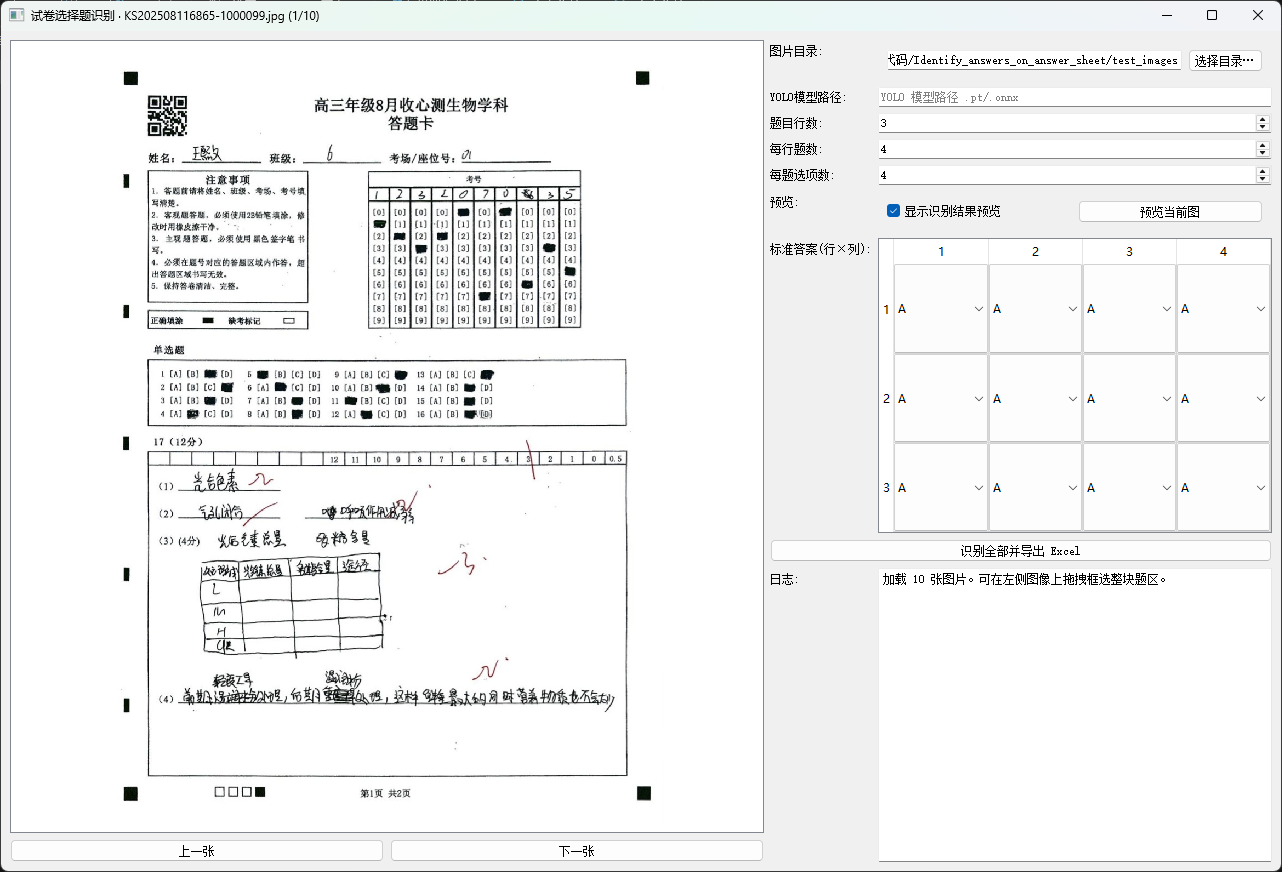 试卷选择题识别 · KS202508116865-1000099.jpg (1/10)
高三年级8月收心测生物学科
答题卡
姓名： 班级： 6 考场/座位号： 01
注意事项
1. 答题前请将姓名、班级、考场、考号填
写清楚。
2. 客观题答题，必须使用2B铅笔填涂，修
改时用橡皮擦干净。
3. 主观题答题，必须使用黑色签字笔书
写。
4. 必须在题号对应的答题区域内作答，超
出答题区域书写无效。
5. 保持答卷清洁、完整。
正确填涂 缺考标记
考号
1 2 3 2 0 7 0 3 5
[0] [0] [0] [0] [0] [0] [0]
[1] [1] [1] [1] [1] [1] [1] [1]
[2] [2] [2] [2] [2] [2] [2]
[3] [3] [3] [3] [3] [3] [3]
[4] [4] [4] [4] [4] [4] [4] [4] [4]
[5] [5] [5] [5] [5] [5] [5] [5]
[6] [6] [6] [6] [6] [6] [6] [6]
[7] [7] [7] [7] [7] [7] [7] [7]
[8] [8] [8] [8] [8] [8] [8] [8] [8]
[9] [9] [9] [9] [9] [9] [9] [9] [9]
单选题
1 [A] [B] [D] 5 [B] [C] [D] 9 [A] [B] [C] 13 [A] [B] [C]
2 [A] [B] [C] 6 [A] [C] [D] 10 [A] [B] [D] 14 [A] [B] [D]
3 [A] [B] [D] 7 [A] [B] [D] 11 [B] [C] [D] 15 [A] [B] [D]
4 [A] [C] [D] 8 [A] [B] [D] 12 [A] [C] [D] 16 [A] [B] [D]
17 (12分)
12 11 10 9 8 7 6 5 4 3 2 1 0 0.5
(1) 光合色素
(2) 气孔闭合
(3) (4分)
L
M
H
(4)
第1页 共2页
上一张 下一张
图片目录: 代码/Identify_answers_on_answer_sheet/test_images 选择目录…
YOLO模型路径: YOLO 模型路径 .pt/.onnx
题目行数: 3
每行题数: 4
每题选项数: 4
预览: 显示识别结果预览 预览当前图
标准答案(行×列):
1 2 3 4
1 A A A A
2 A A A A
3 A A A A
识别全部并导出 Excel
日志: 加载 10 张图片。可在左侧图像上拖拽框选整块题区。